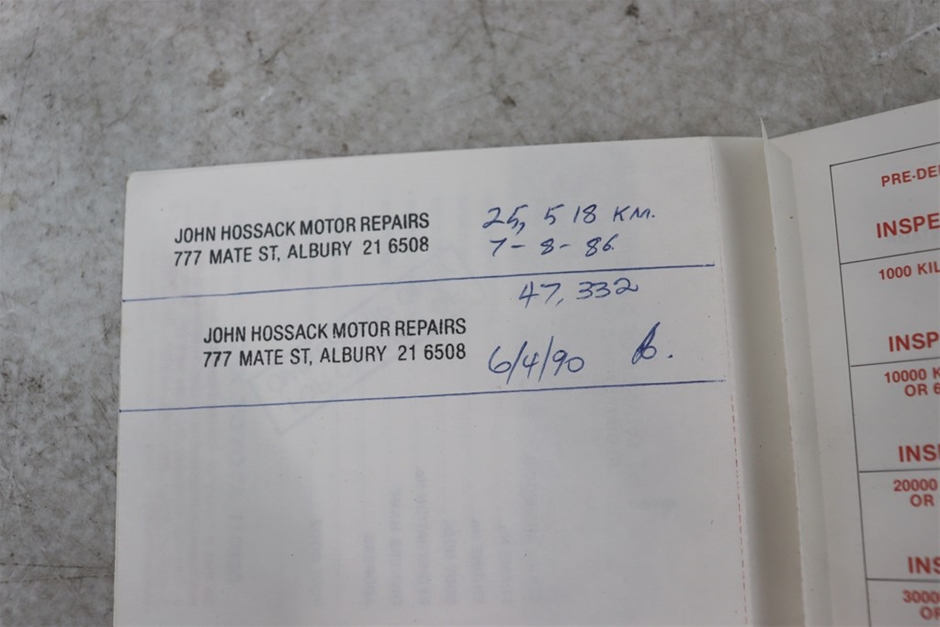 JOHN HOSSACK MOTOR REPAIRS
777 MATE ST, ALBURY 21 6508
25,518 KM.
7-8-86.
47,332
JOHN HOSSACK MOTOR REPAIRS
777 MATE ST, ALBURY 21 6508
6/4/90
PRE-DE
INSPE
1000 KIL
INSP
10000 K
OR 6
INSP
20000
OR
INS
30000
OR